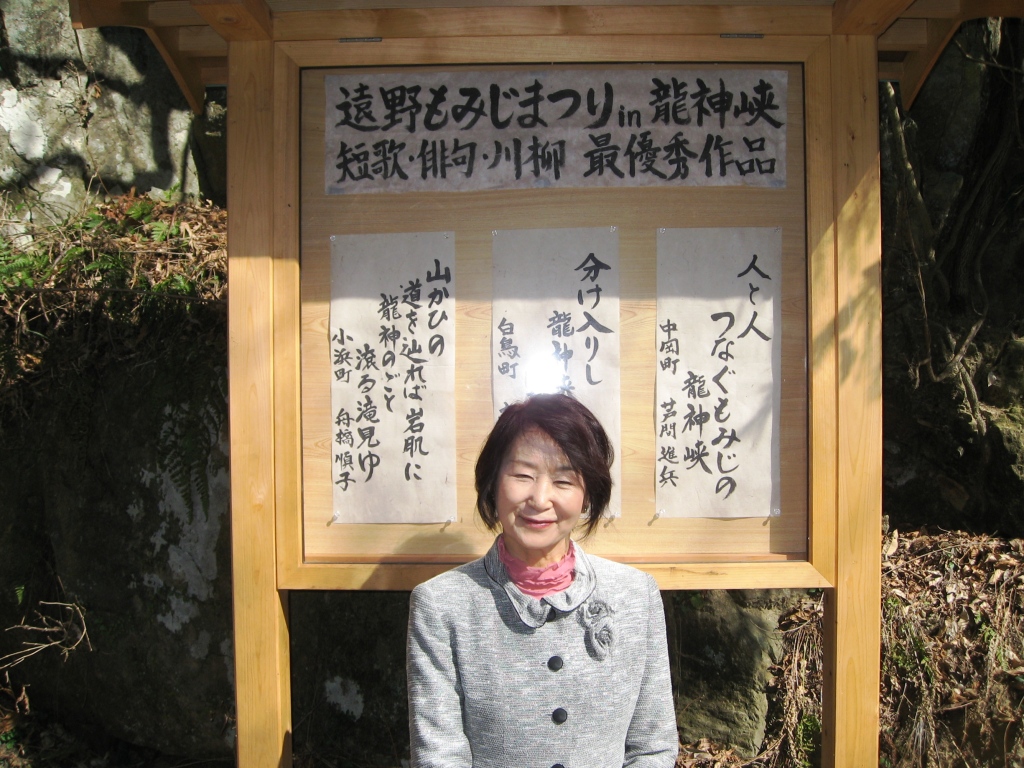 遠野もみじまつりin龍神峡
短歌・俳句・川柳 最優秀作品
人と人
つなぐもみじの
龍神峡
中岡町 芦間進兵
分け入りし
龍神峡
白鳥町
山かひの
道を辿れば岩肌に
龍神のごと
滾る滝見ゆ
小浜町 舟橋順子